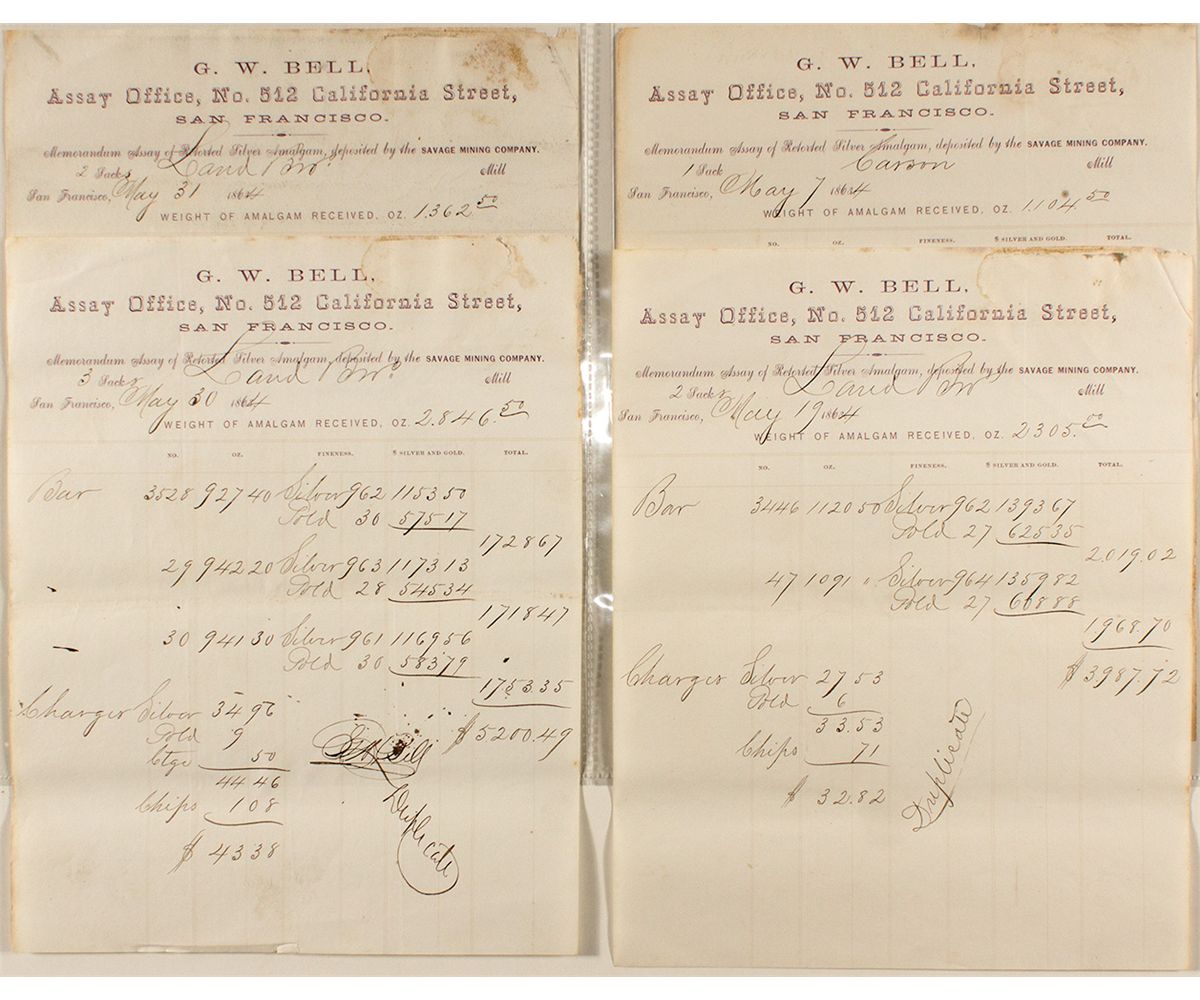 G. W. BELL,
Assay Office, No. 512 California Street,
SAN FRANCISCO.
Memorandum Assay of Retorted Silver Amalgam, deposited by the SAVAGE MINING COMPANY.
2 Sacks Land Bro Mill
San Francisco, May 31 1864
WEIGHT OF AMALGAM RECEIVED, OZ. 1.362.50
G. W. BELL,
Assay Office, No. 512 California Street,
SAN FRANCISCO.
Memorandum Assay of Retorted Silver Amalgam, deposited by the SAVAGE MINING COMPANY.
3 Sacks Land Bro Mill
San Francisco, May 30 1864
WEIGHT OF AMALGAM RECEIVED, OZ. 2.846.50
NO. OZ. FINENESS. $ SILVER AND GOLD. TOTAL.
Bar 3528 927 40 Silver 962 1153 50
Gold 30 575 17
1728 67
29 942 20 Silver 963 1173 13
Gold 28 545 34
1718 47
30 941 30 Silver 961 1169 56
Gold 30 583 79
1753.35
Charges Silver 34 96 $5200.49
Gold 9
50
44 46
Chips 1 08
$ 43 38
Duplicate
G. W. BELL,
Assay Office, No. 512 California Street,
SAN FRANCISCO.
Memorandum Assay of Retorted Silver Amalgam, deposited by the SAVAGE MINING COMPANY.
1 Sack Carson Mill
San Francisco, May 7 1864
WEIGHT OF AMALGAM RECEIVED, OZ. 1.104.50
NO. OZ. FINENESS. $ SILVER AND GOLD. TOTAL.
G. W. BELL,
Assay Office, No. 512 California Street,
SAN FRANCISCO.
Memorandum Assay of Retorted Silver Amalgam, deposited by the SAVAGE MINING COMPANY.
2 Sacks Land Bro Mill
San Francisco, May 19 1864
WEIGHT OF AMALGAM RECEIVED, OZ. 2305.00
NO. OZ. FINENESS. $ SILVER AND GOLD. TOTAL.
Bar 3446 1120 50 Silver 962 1393 67
Gold 27 625 35
2.019.02
47 1091 " Silver 964 1359 82
Gold 27 608 88
1968.70
Charges Silver 27 53 $3987.72
Gold 6
33.53
Chips 71
$ 32.82
Duplicate